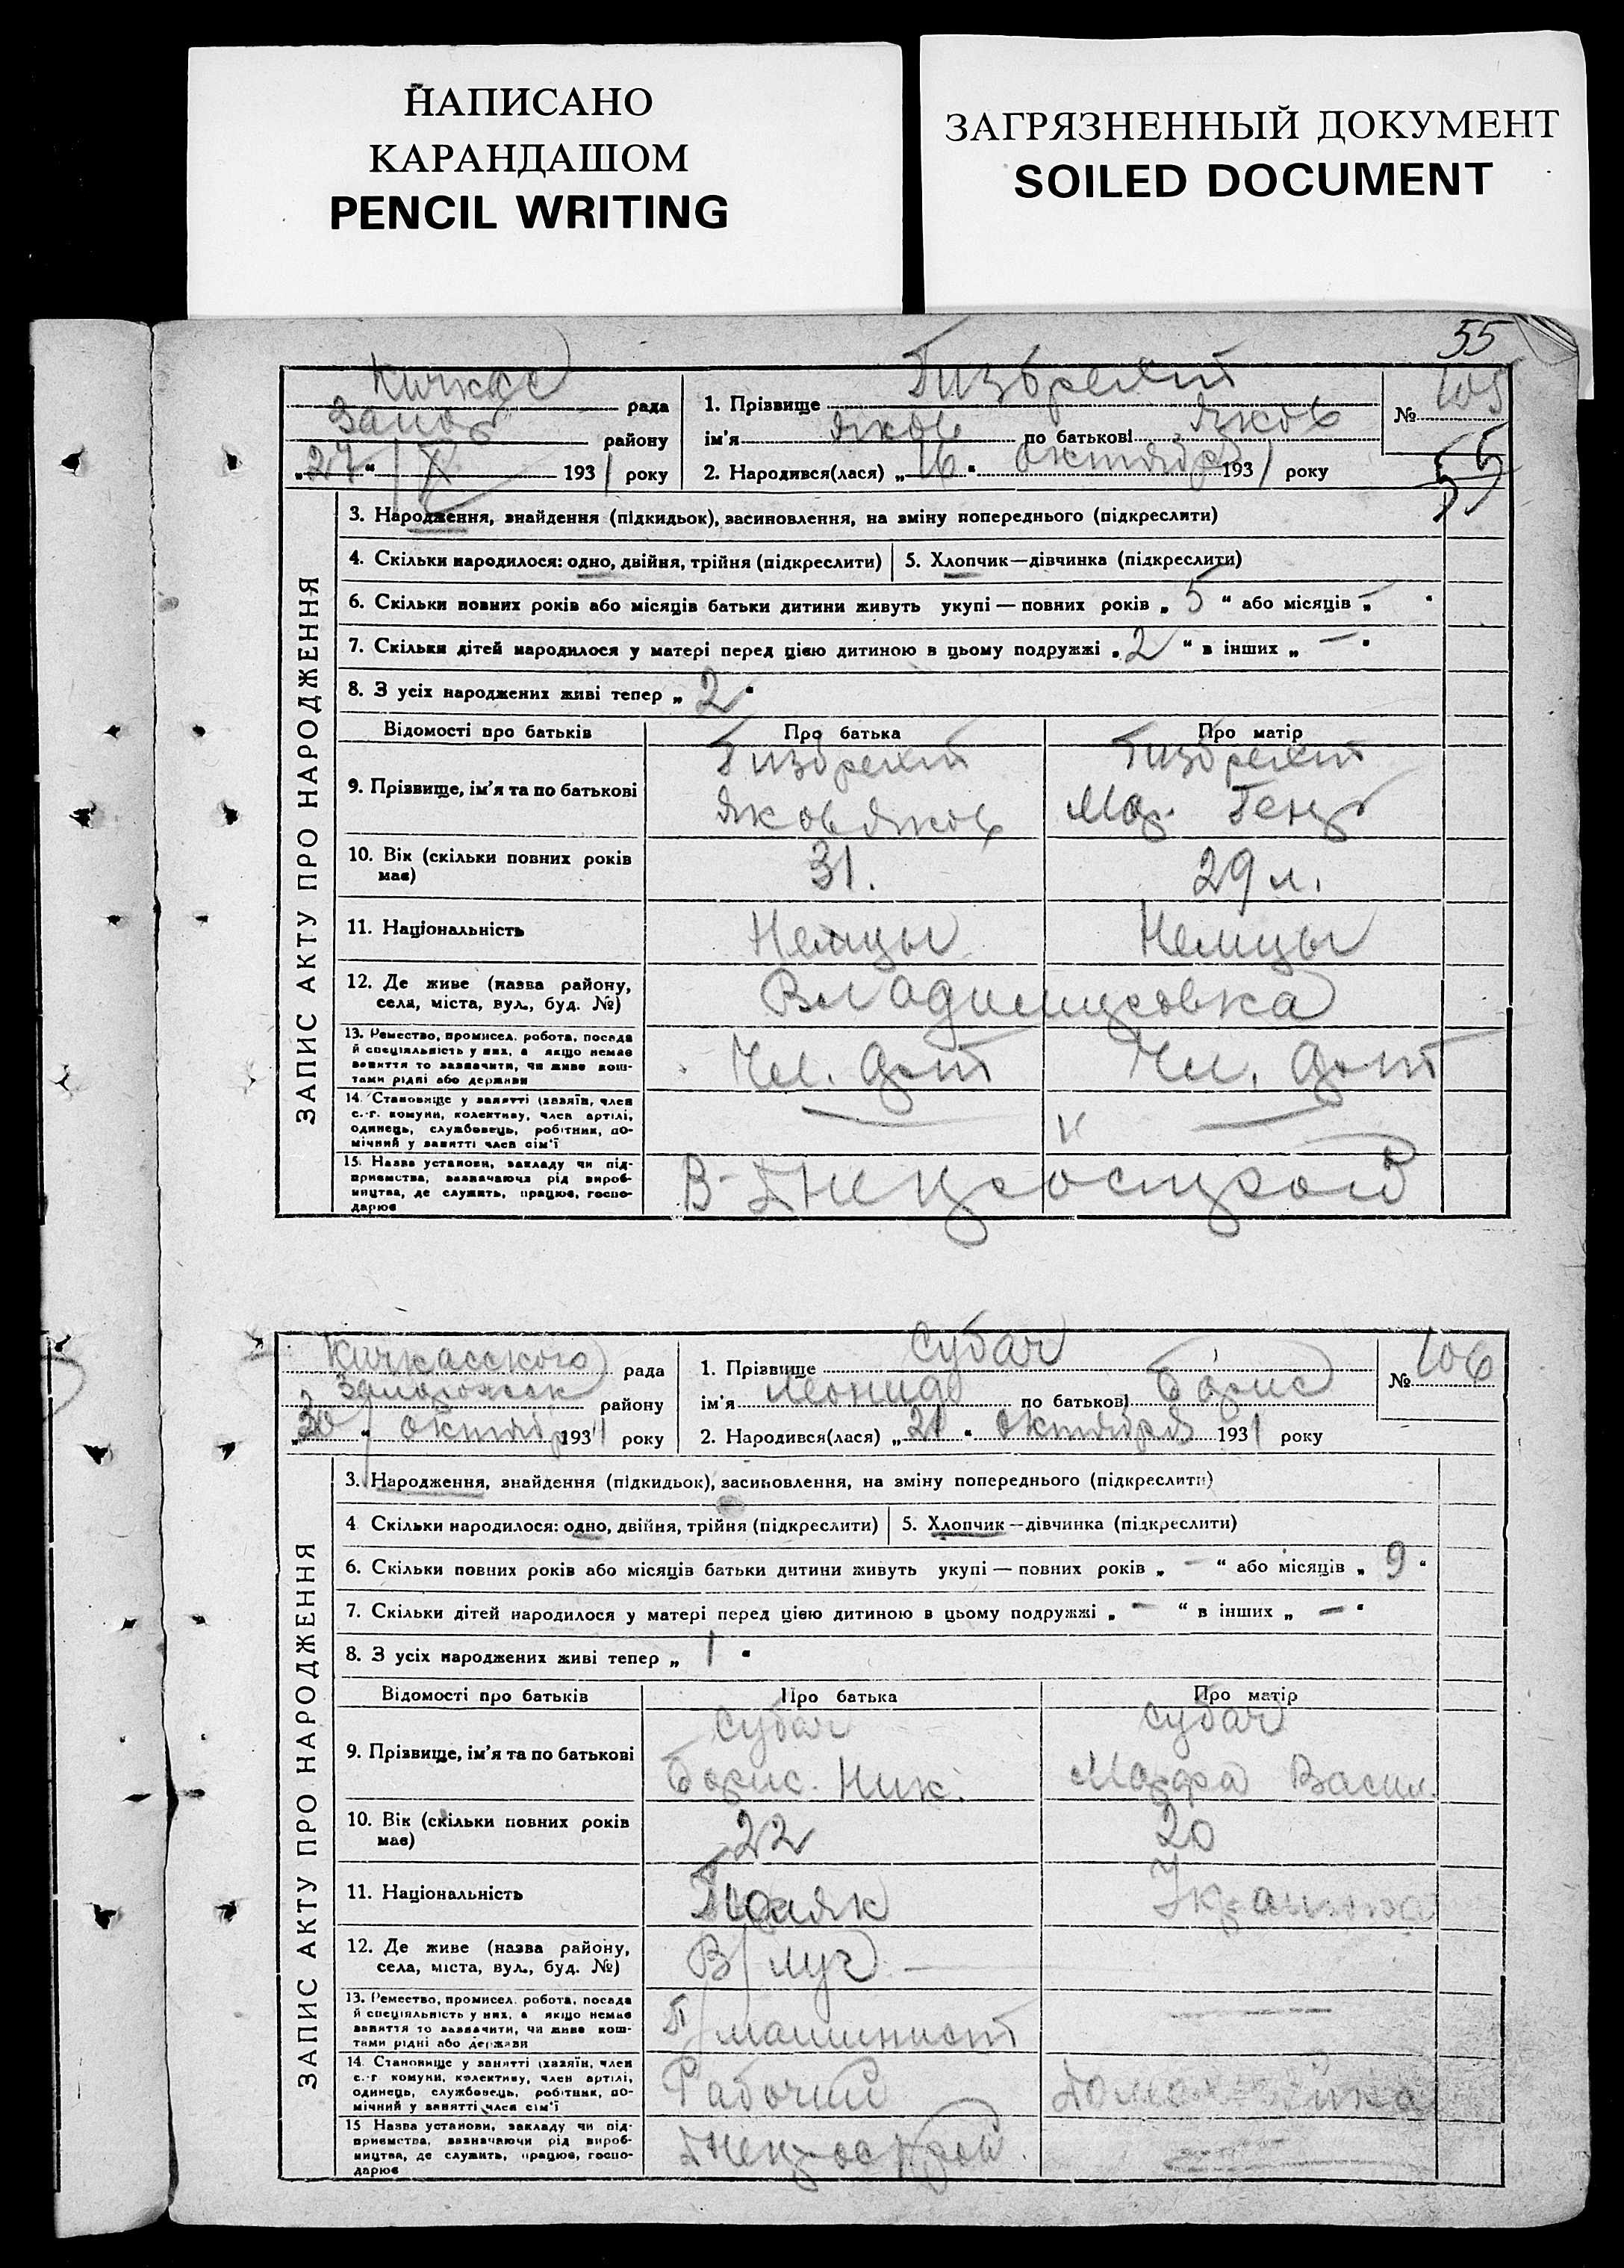 НАПИСАНО
КАРАНДАШОМ
PENCIL WRITING
ЗАГРЯЗНЕННЫЙ ДОКУМЕНТ
SOILED DOCUMENT
55
Кичкас рада
Запор району
„27“ X 1931 року
1. Прізвище Гизбрехт
ім'я Яков по батькові Яков
2. Народився(лася) „16“ октября 1931 року
№ 105
55
ЗАПИС АКТУ ПРО НАРОДЖЕННЯ
3. Народження, знайдення (підкидьок), засиновлення, на зміну попереднього (підкреслити)
4. Скільки народилося: одно, двійня, трійня (підкреслити) 5. Хлопчик—дівчинка (підкреслити)
6. Скільки повних років або місяців батьки дитини живуть укупі — повних років „5“ або місяців „—“
7. Скільки дітей народилося у матері перед цією дитиною в цьому подружжі „2“ в інших „—“
8. З усіх народжених живі тепер „2“
Відомості про батьків Про батька Про матір
9. Прізвище, ім'я та по батькові Гизбрехт Гизбрехт
Яков Яков Мар. Генр
10. Вік (скільки повних років має) 31. 29 л.
11. Національність Немцы Немцы
12. Де живе (назва району, села, міста, вул., буд. №) Владимировка
13. Ремество, промисел, робота, посада й спеціяльність у них, а якщо немає заняття то зазначити, чи живе коштами рідні або держави Чл. Чл.
14. Становище у занятті (хазяїн, член с.-г. комуни, колективу, член артілі, одинець, службовець, робітник, помічний у занятті член сім'ї — —
15. Назва установи, закладу чи підприємства, зазначаючи рід виробництва, де служить, працює, господарює
Кичкасского рада
Запорожск району
„30“ октябр 1931 року
1. Прізвище Субач
ім'я Леонид по батькові Борис
2. Народився(лася) „21“ октября 1931 року
№ 106
ЗАПИС АКТУ ПРО НАРОДЖЕННЯ
3. Народження, знайдення (підкидьок), засиновлення, на зміну попереднього (підкреслити)
4 Скільки народилося: одно, двійня, трійня (підкреслити) 5. Хлопчик—дівчинка (підкреслити)
6. Скільки повних років або місяців батьки дитини живуть укупі — повних років „—“ або місяців „9“
7. Скільки дітей народилося у матері перед цією дитиною в цьому подружжі „—“ в інших „—“
8. З усіх народжених живі тепер „1“
Відомості про батьків Про батька Про матір
9. Прізвище, ім'я та по батькові Субач Субач
Борис. Ник. Марфа Васил.
10. Вік (скільки повних років має) 22 20
11. Національність Поляк Украинка
12. Де живе (назва району, села, міста, вул., буд. №) В/луг —
13. Ремество, промисел, робота, посада й спеціяльність у них, а якщо немає заняття то зазначити, чи живе коштами рідні або держави П/машинист —
14. Становище у занятті (хазяїн, член с.-г комуни, колективу, член артілі, одинець, службовець, робітник, помічний у занятті член сім'ї Рабочий Домохозяйка
15 Назва установи, закладу чи підприємства, зазначаючи рід виробництва, де служить, працює, господарює Днепрострой